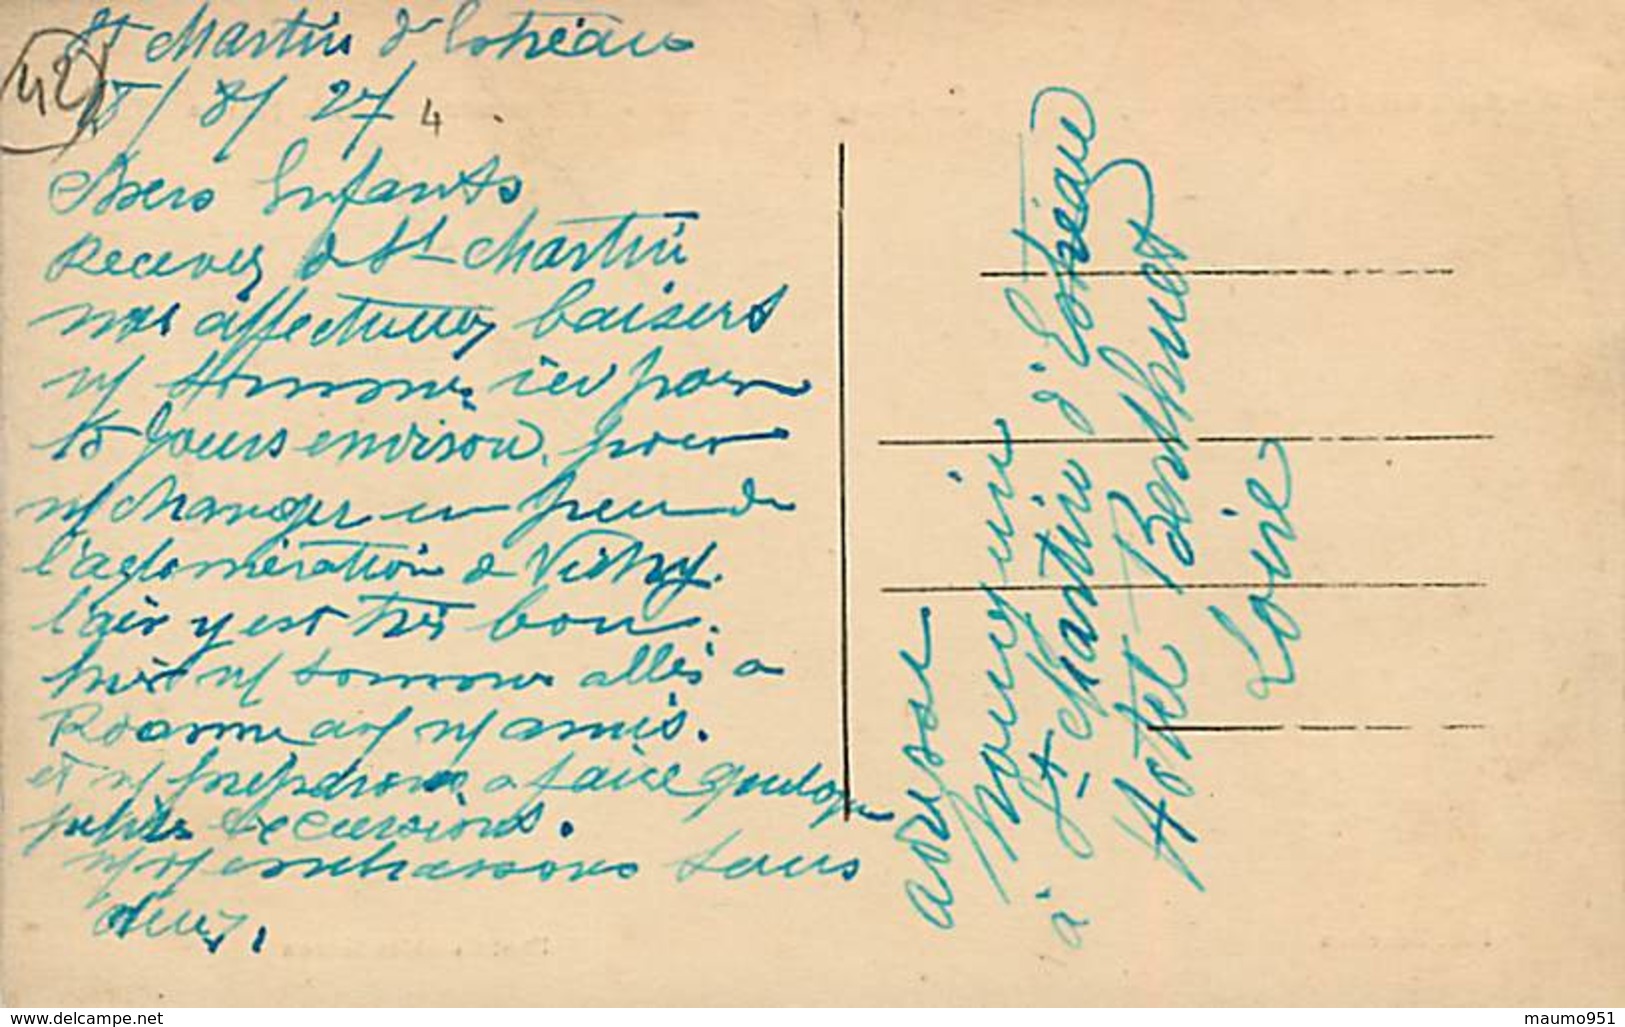 St Martin d'Estréaux
42
15/ 8/ 27 4
Chers Enfants
Recevez de St Martin
nos affectueux baisers
n/ sommes ici pour
15 Jours environ, pour
n/ changer un peu de
l'aglomération de Vichy.
l'air y est très bon.
hier n/ sommes allés a
Roanne avec n/ amis.
et n/ faire quelques
petites excursions.
n/ v/ embrassons tous
deux.
adresse
Mouzinin
à St Martin d'Estréaux
Hotel Berthuet
Loire
www.delcampe.net
maumo951